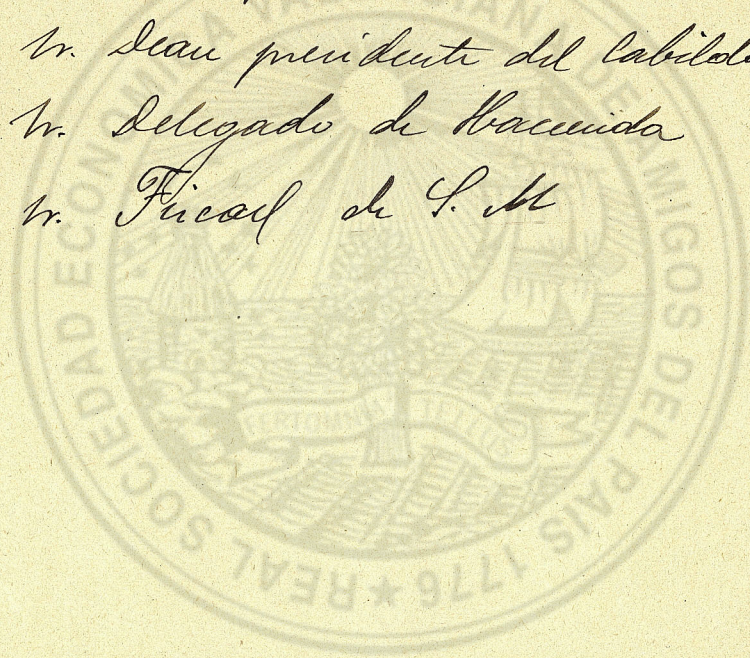 Sr. Dean presidente del Cabildo
Sr. Delegado de Hacienda
Sr. Fiscal de S. M
REAL SOCIEDAD ECONOMICA VALENCIANA DE AMIGOS DEL PAIS 1776